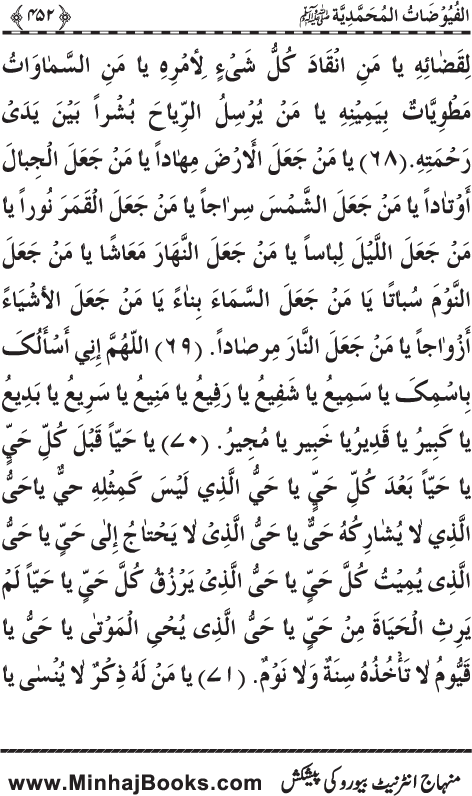 الفُيُوْضَاتُ المُحَمَّدِيَّة ﷺ ﴿۴۵۲﴾
لِقَضَائِهِ يا مَنِ انْقَادَ كُلُّ شَىْءٍ لِأمْرِهِ يا مَنِ السَّمَاوَاتُ
مَطْوِيَّاتٌ بِيَمِيْنِهِ يا مَنْ يُرْسِلُ الرِّياحَ بُشْراً بَيْنَ يَدَىْ
رَحْمَتِهِ. (۶۸) يا مَنْ جَعَلَ الْاَرْضَ مِهَاداً يا مَنْ جَعَلَ الْجِبالَ
اَوْتاداً يا مَنْ جَعَلَ الشَّمْسَ سِراجاً يا مَنْ جَعَلَ الْقَمَرَ نُوراً يا
مَنْ جَعَلَ اللَّيْلَ لِباساً يا مَنْ جَعَلَ النَّهَارَ مَعَاشًا يا مَنْ جَعَلَ
النَّوْمَ سُباتًا يَا مَنْ جَعَلَ السَّمَاءَ بِناءً يَا مَنْ جَعَلَ الأشْيَاءَ
أزْوَاجاً يا مَنْ جَعَلَ النَّارَ مِرصاداً. (۶۹) اللّهُمَّ إِنِي أَسْأَلُکَ
بِاسْمِکَ يا سَمِيعُ يا شَفِيعُ يا رَفِيعُ يا مَنِيعُ يا سَرِيعُ يا بَدِيعُ
يا كَبِيرُ يا قَدِيرُيا خَبِير يا مُجِيرُ. (۷۰) يا حَيّاً قَبْلَ كُلِّ حَيٍّ
يا حَيّاً بَعْدَ كُلِّ حَيٍّ يا حَيُّ الَّذِي لَيْسَ كَمِثْلِهِ حيٌّ ياحَىُّ
الَّذِي لا يُشارِكُهُ حَىٌّ يا حَىُّ الَّذِىْ لا يَحْتاجُ إِلى حَيٍّ يا حَىُّ
الَّذِى يُمِيْتُ كُلَّ حَيٍّ يا حَىُّ الَّذِى يَرْزُقُ كُلَّ حَيٍّ يا حَيّاً لَمْ
يَرِثِ الْحَيَاةَ مِنْ حَيٍّ يا حَىُّ الَّذِى يُحْىِ الْمَوْتٰى يا حَىُّ يا
قَيُّومُ لا تَأْخُذُهُ سِنَةٌ وَلا نَوْمٌ. (۷۱) يا مَنْ لَهُ ذِكْرٌ لا يُنْسٰى يا
منہاج انٹرنیٹ بیورو کی پیشکش www.MinhajBooks.com